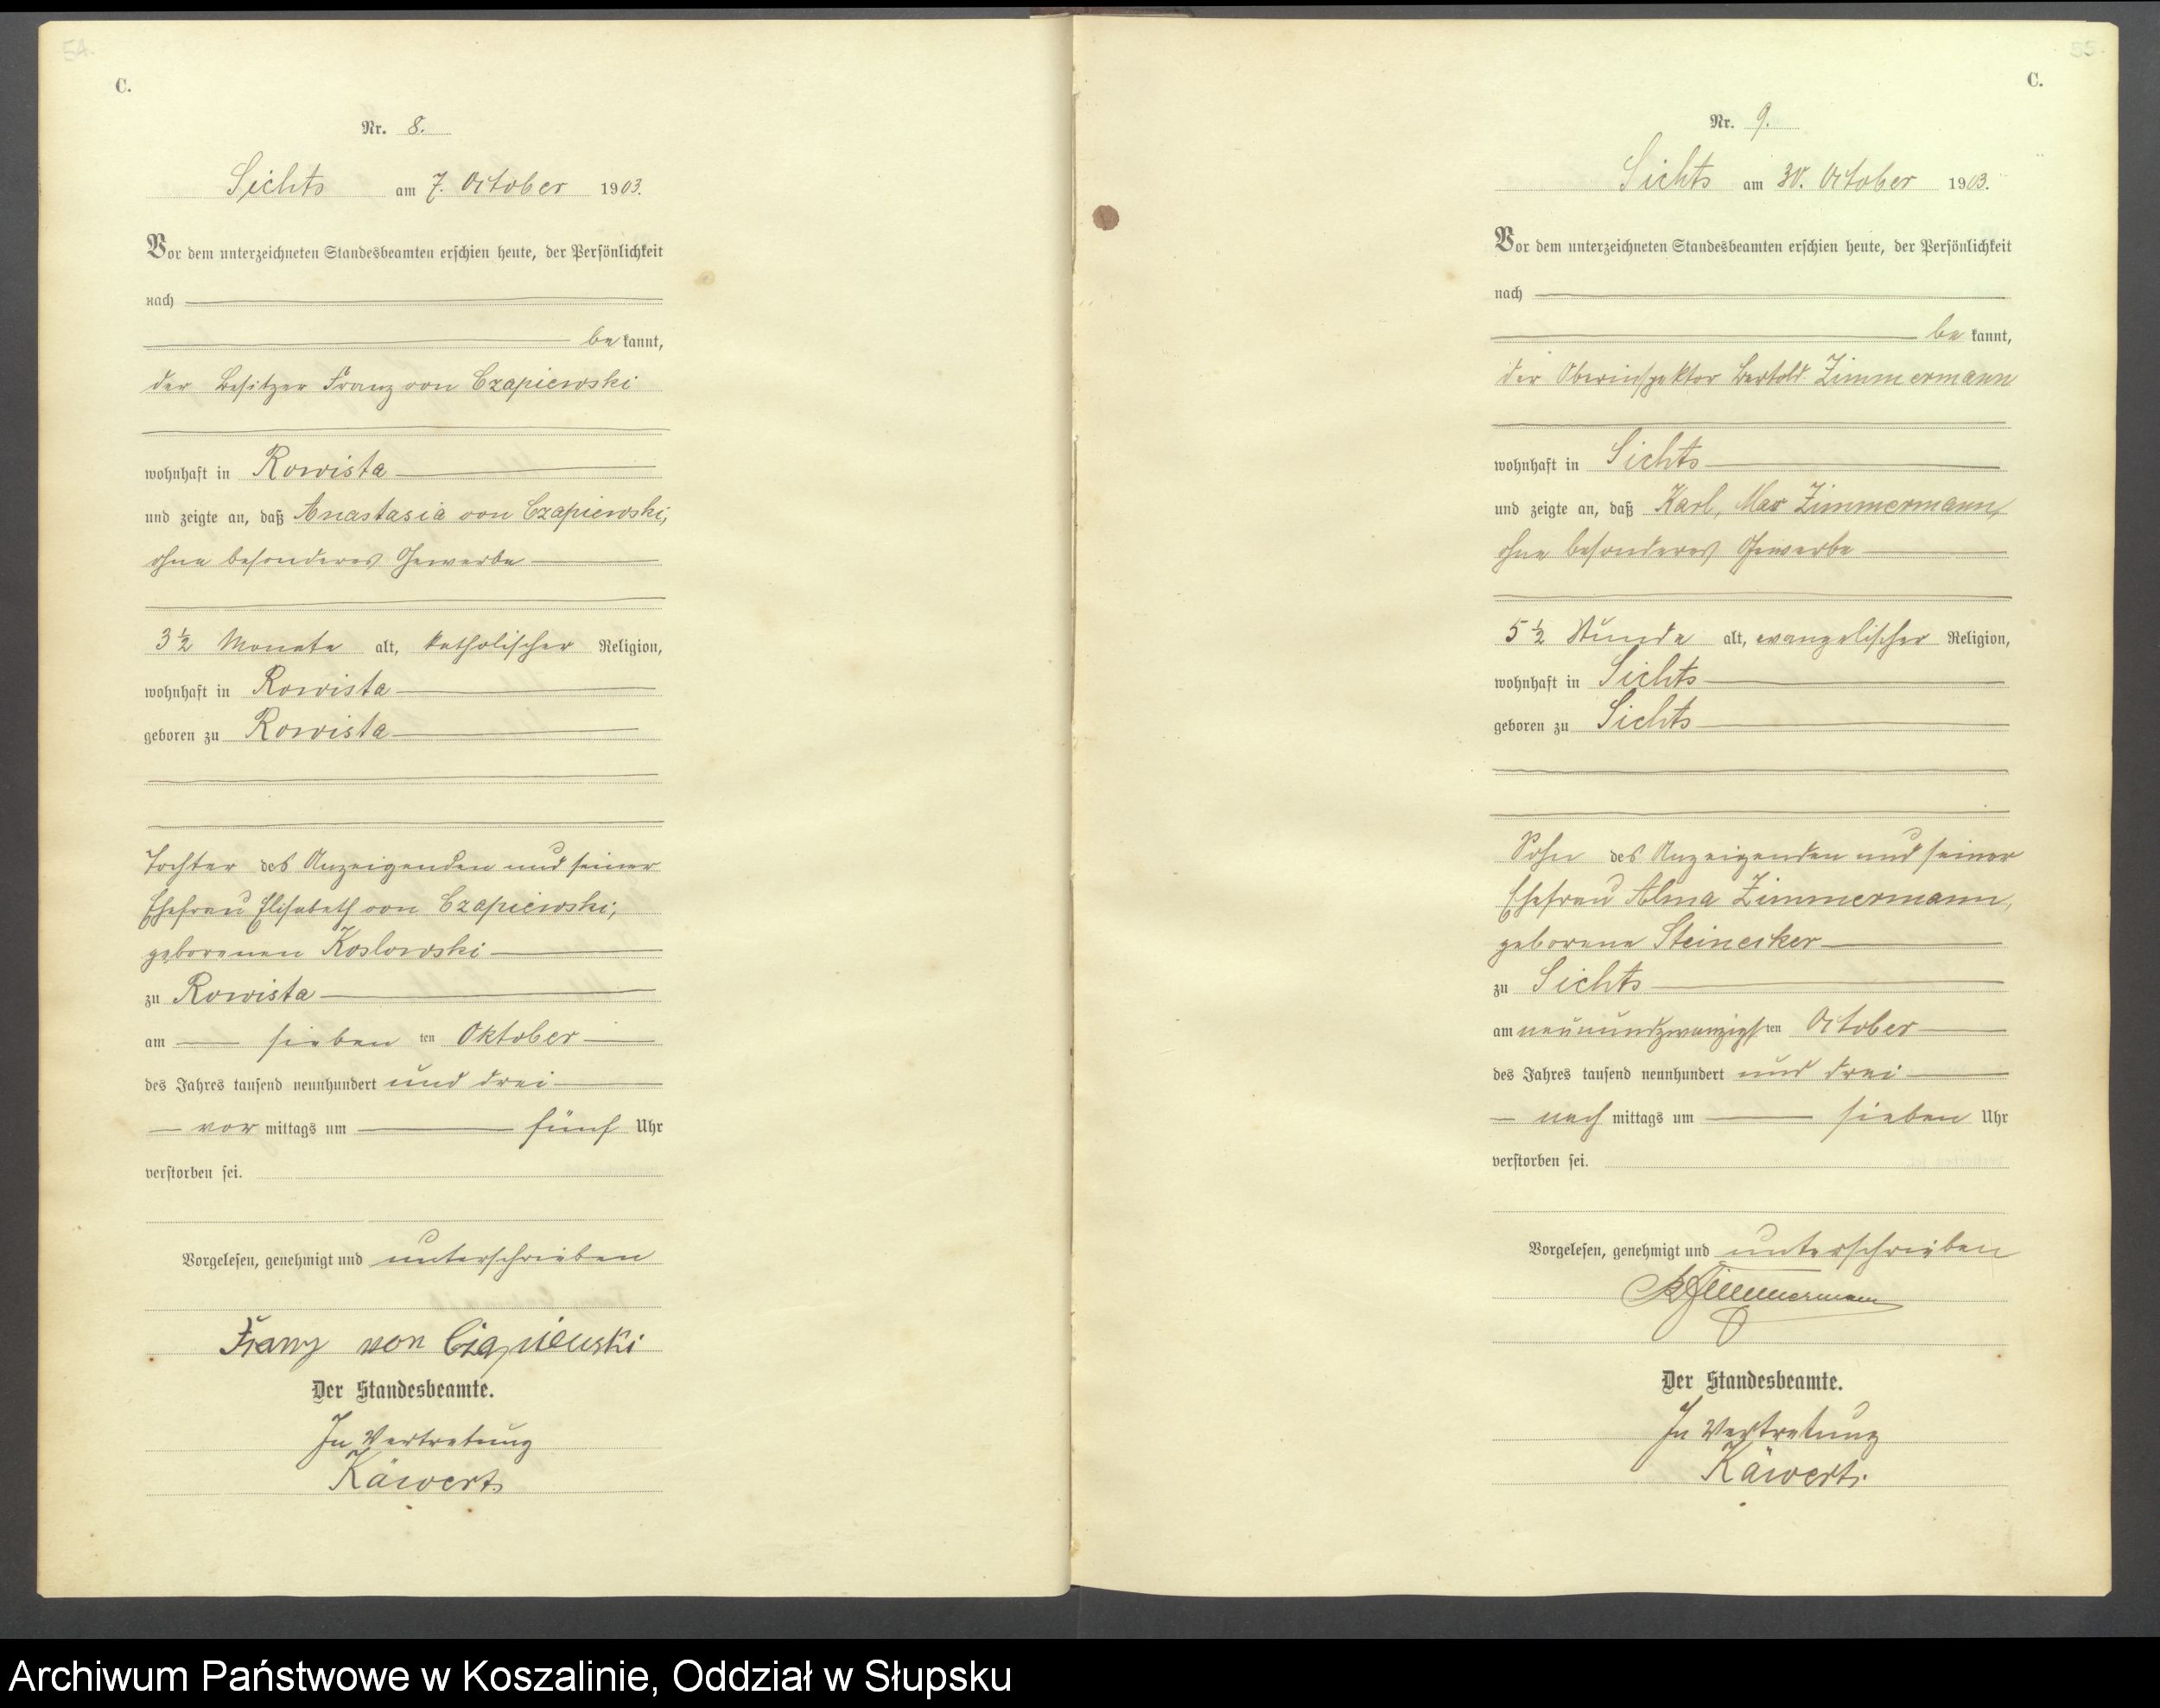 54.
C.
Nr. 8.
Sichts am 7. October 1903.
Vor dem unterzeichneten Standesbeamten erschien heute, der Persönlichkeit
nach
be kannt,
der Besitzer Franz von Czapiewski
wohnhaft in Rowista
und zeigte an, daß Anastasia von Czapiewski,
ohne besonderes Gewerbe
3 ½ Monate alt, katholischer Religion,
wohnhaft in Rowista
geboren zu Rowista
Tochter des Anzeigenden und seiner
Ehefrau Elisabeth von Czapiewski,
geborenen Koslowski
zu Rowista
am sieben ten Oktober
des Jahres tausend neunhundert und drei
vor mittags um fünf Uhr
verstorben sei.
Vorgelesen, genehmigt und unterschrieben
Franz von Czapiewski
Der Standesbeamte.
In Vertretung
Käwert
55.
C.
Nr. 9.
Sichts am 30. October 1903.
Vor dem unterzeichneten Standesbeamten erschien heute, der Persönlichkeit
nach
be kannt,
der Oberinspektor Bertold Zimmermann
wohnhaft in Sichts
und zeigte an, daß Karl, Max Zimmermann,
ohne besonderes Gewerbe
5 ½ Stunde alt, evangelischer Religion,
wohnhaft in Sichts
geboren zu Sichts
Sohn des Anzeigenden und seiner
Ehefrau Alma Zimmermann,
geborene Steinecker
zu Sichts
am neunundzwanzigs ten October
des Jahres tausend neunhundert und drei
nach mittags um sieben Uhr
verstorben sei.
Vorgelesen, genehmigt und unterschrieben
B Zimmermann
Der Standesbeamte.
In Vertretung
Käwert
Archiwum Państwowe w Koszalinie, Oddział w Słupsku